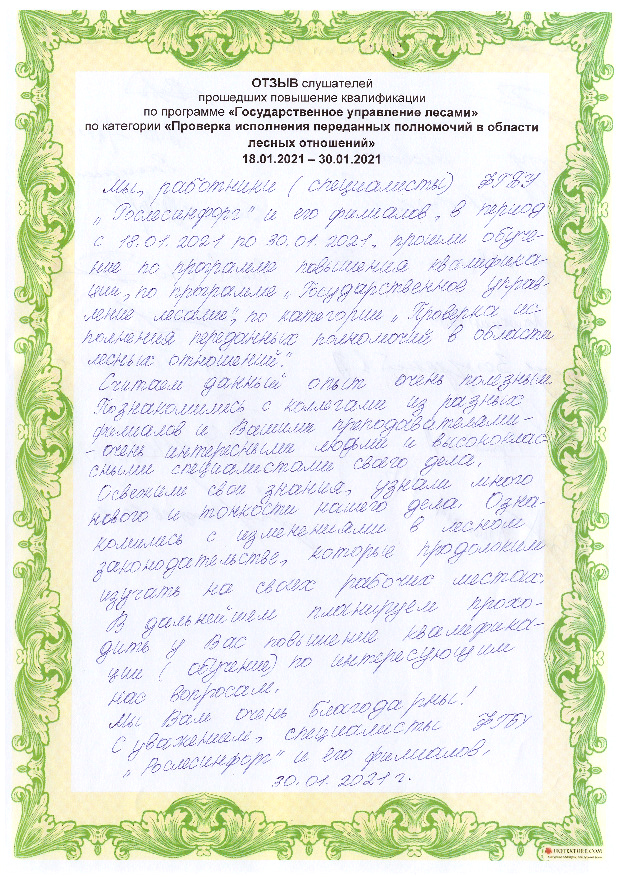 ОТЗЫВ слушателей
прошедших повышение квалификации
по программе «Государственное управление лесами»
по категории «Проверка исполнения переданных полномочий в области
лесных отношений»
18.01.2021 – 30.01.2021
Мы, работники (специалисты) ФГБУ
„Рослесинфорг" и его филиалов, в период
с 18.01.2021 по 30.01.2021. прошли обуче-
ние по программе повышения квалифика-
ции, по прграмме „Государственное управ-
ление лесами", по категории „Проверка ис-
полнения переданных полномочий в области
лесных отношений".
Считаем данный опыт очень полезным
Познакомились с коллегами из разных
филиалов и Вашими преподавателями-
- очень интересными людьми и высококлас
сными специалистами своего дела.
Освежили свои знания, узнали много
нового и тонкости нашего дела. Озна-
комились с изменениями в лесном
законодательстве, которые продолжим
изучать на своих рабочих местах.
В дальнейшем планируем прохо-
дить у Вас повышение квалифика-
ции (обучение) по интересующим
нас вопросам.
Мы Вам очень благодарны!
С уважением, специалисты ФГБУ
„Рослесинфорг" и его филиалов.
30.01.2021 г.